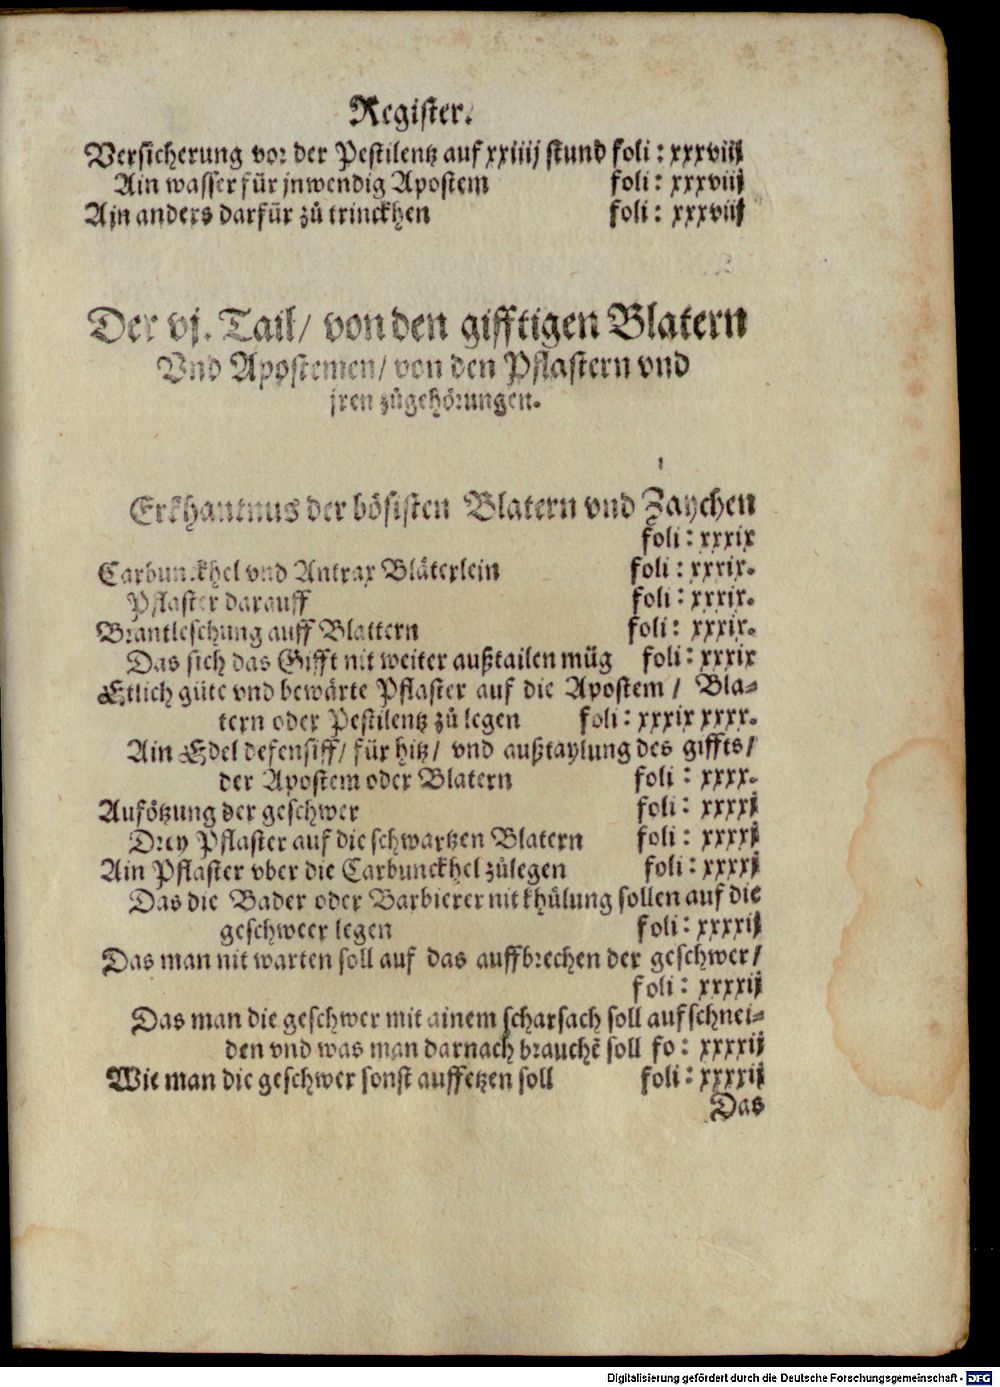 Register.
Versicherung vor der Pestilentz auf xxiiij stund foli: xxxviij
Ain wasser für jnwendig Apostem foli: xxxviij
Ain anders darfür zů trinckhen foli: xxxviij
Der vj. Tail/ von den gifftigen Blatern
Vnd Apostemen/ von den Pflastern vnd
jren zůgehörungen.
Erkhantnus der bösisten Blatern vnd Zaychen
foli: xxxix
Carbunckhel vnd Antrax Bläterlein foli: xxxix.
Pflaster darauff foli: xxxix.
Brantleschung auff Blattern foli: xxxix.
Das sich das Gifft nit weiter außtailen müg foli: xxxix
Etlich gůte vnd bewärte Pflaster auf die Apostem / Bla-
tern oder Pestilentz zů legen foli: xxxix xxxx.
Ain Edel defensiff/ für hitz/ vnd außtaylung des giffts/
der Apostem oder Blatern foli: xxxx.
Aufötzung der geschwer foli: xxxxj
Drey Pflaster auf die schwartzen Blatern foli: xxxxj
Ain Pflaster vber die Carbunckhel zůlegen foli: xxxxj
Das die Bader oder Barbierer nit khůlung sollen auf die
geschweer legen foli: xxxxij
Das man nit warten soll auf das auffbrechen der geschwer/
foli: xxxxij
Das man die geschwer mit ainem scharsach soll aufschnei-
den vnd was man darnach brauchē soll fo: xxxxij
Wie man die geschwer sonst auffetzen soll foli: xxxxij
Das
Digitalisierung gefördert durch die Deutsche Forschungsgemeinschaft - DFG